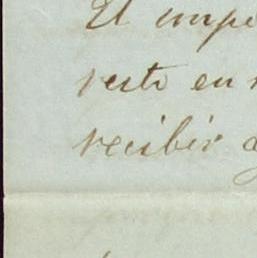 El impe
resto en
recibir